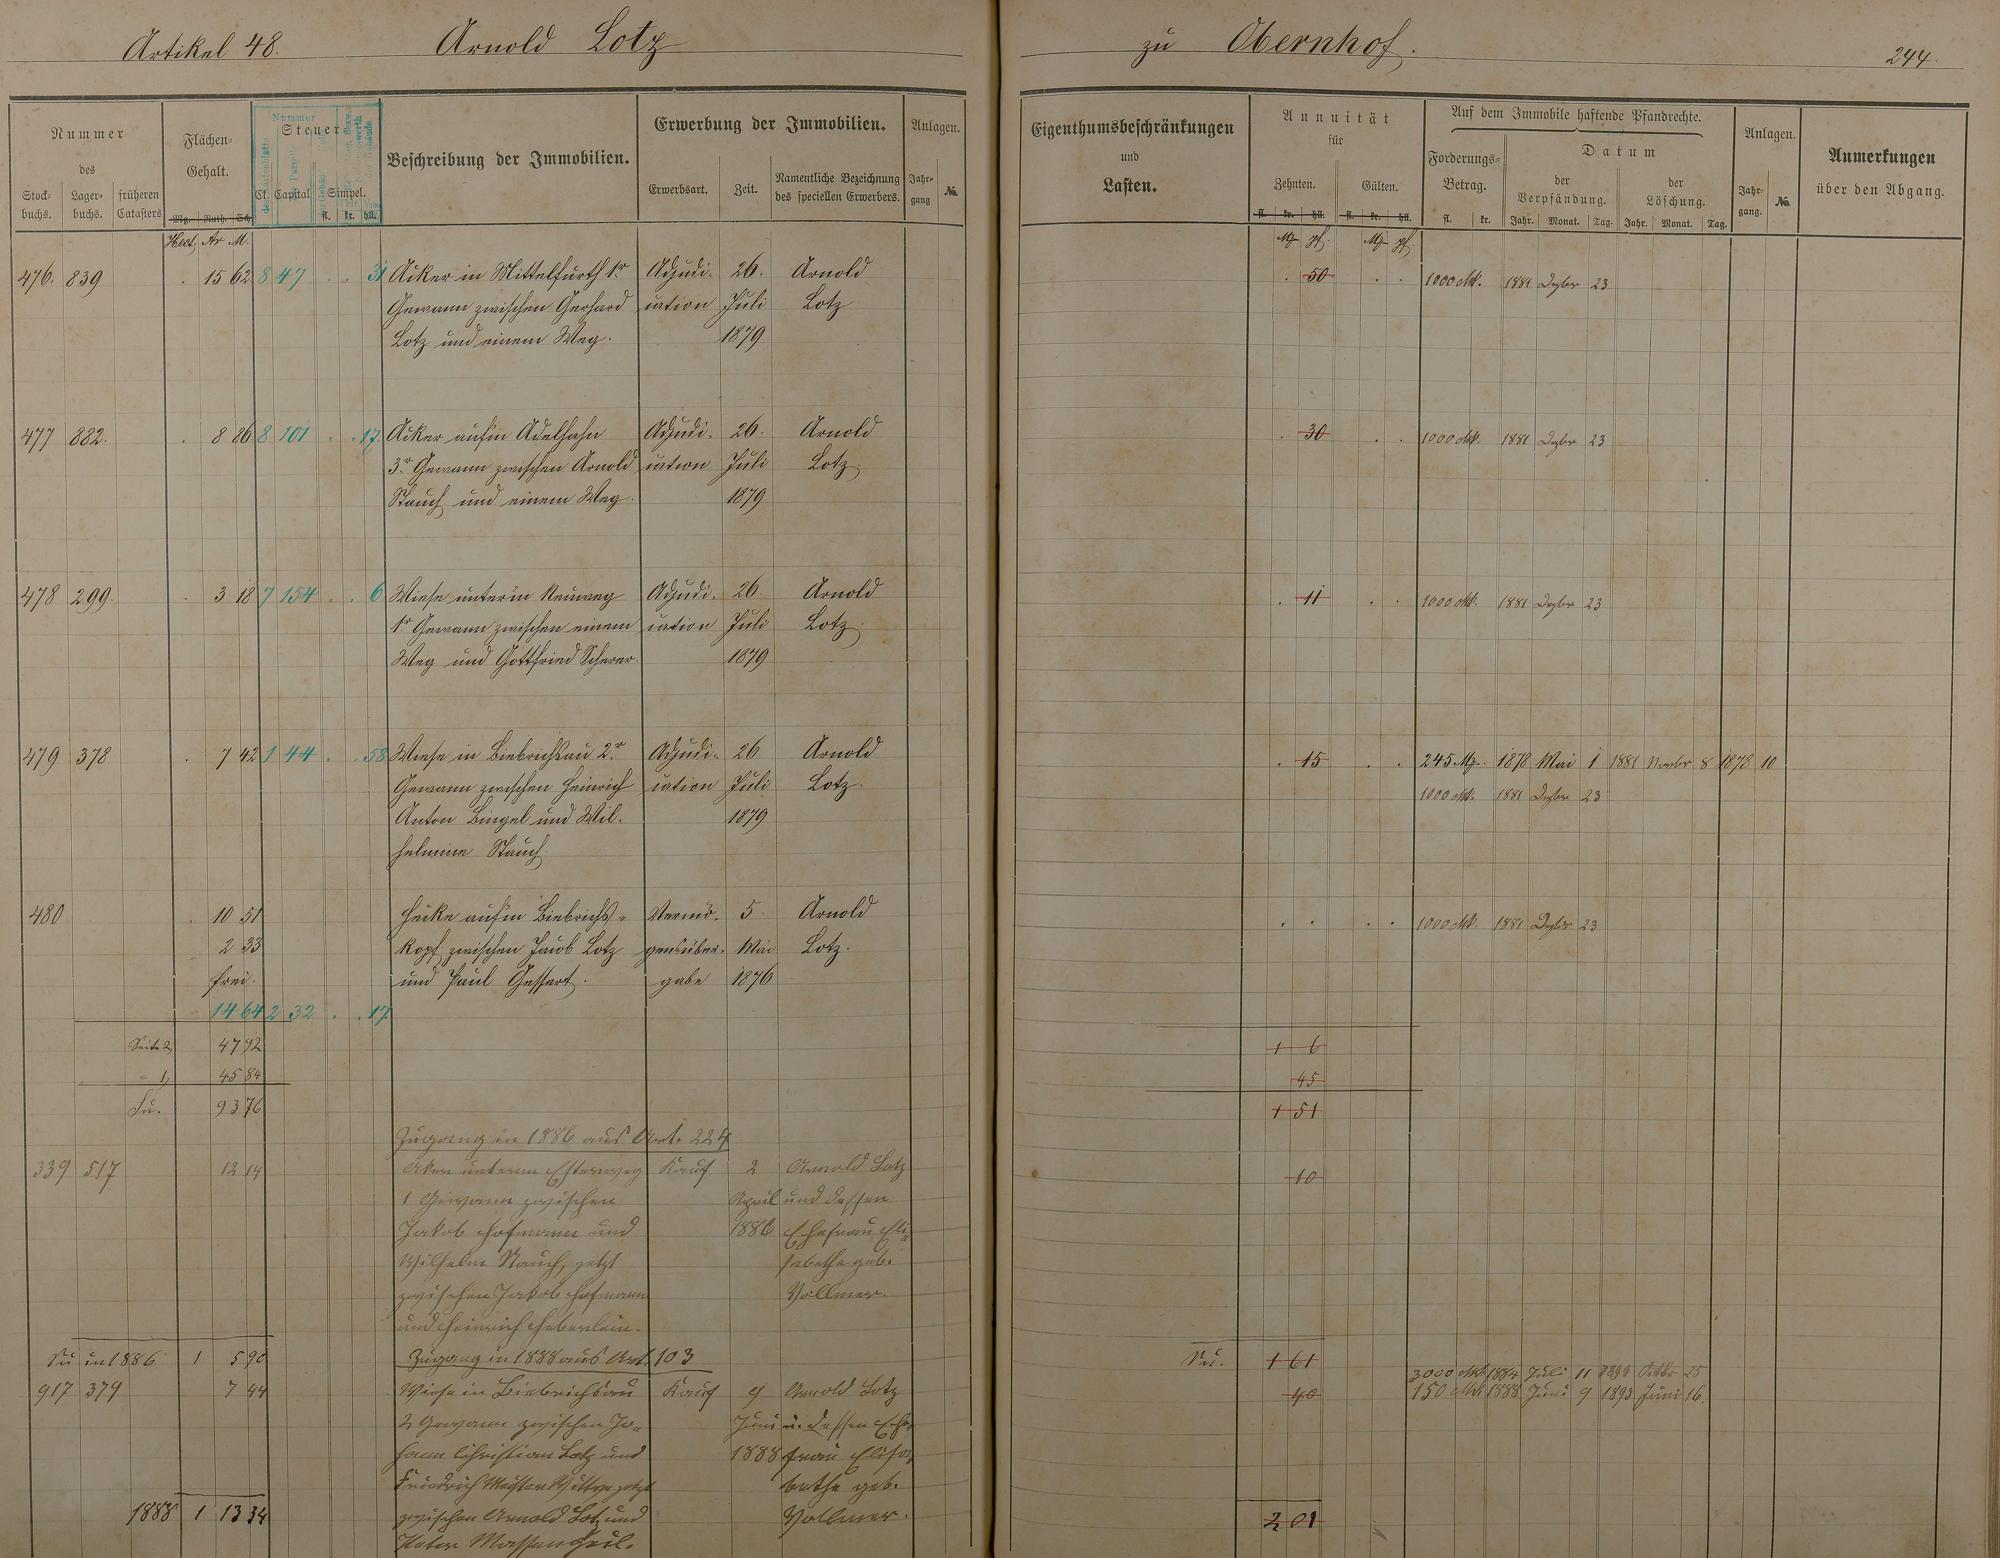 Artikel 48. Arnold Lotz zu Obernhof. 244.
Nummer des
Stockbuchs. Lagerbuchs. früheren Catasters
Flächen-Gehalt.
Mg. Ruth. Sch.
Steuer
Nummer
Cl. Capital Simpel.
fl. kr. hll.
Beschreibung der Immobilien.
Erwerbung der Immobilien.
Erwerbsart. Zeit. Namentliche Bezeichnung des speciellen Erwerbers.
Anlagen.
Jahrgang №
Eigenthumsbeschränkungen
und
Lasten.
Annuität
für
Zehnten. Gülten.
fl. kr. hll. fl. kr. hll.
Auf dem Immobile haftende Pfandrechte.
Forderungs-Betrag.
fl. kr.
Datum
der Verpfändung. der Löschung.
Jahr. Monat. Tag. Jahr. Monat. Tag.
Anlagen.
Jahrgang. №
Anmerkungen
über den Abgang.
Hect. Ar M. Mk pf. Mk pf.
476. 839 . 15 62 8 47 . . 31 Acker in Mittelfurth 1r Adjudi- 26. Arnold . 50 . . 1000 Mk. 1881 Dezbr 23
Gewann zwischen Gerhard cation Juli Lotz
Lotz und einem Weg. 1879
477 882. . 8 86 8 101 . . 17. Acker auf'm Adelhahn Adjudi- 26. Arnold . 30 . . 1000 Mk. 1881 Dezbr 23
3r Gewann zwischen Arnold cation Juli Lotz
Stauch und einem Weg. 1879
478 299. . 3 18 7 154 . . 6 Wiese unter'm Neuweg Adjudi- 26. Arnold . 11 . . 1000 Mk. 1881 Dezbr 23
1r Gewann zwischen einem cation Juli Lotz
Weg und Gottfried Scherer. 1879
479 378 . 7 42 1 44 . . 58 Wiese in Biebrichsau 2r Adjudi- 26 Arnold . 15 . . 245 Mk. 1878 Mai 1 1881 Novbr 8 1878 10
Gewann zwischen Heinrich cation Juli Lotz. 1000 Mk. 1881 Dezbr 23
Anton Bingel und Wil- 1879
helmine Stauch.
480 . 10 51 Hecke auf'm Biebrichs- Vermö- 5. Arnold . . . . 1000 Mk. 1881 Dezbr 23
2 33 kopf zwischen Jacob Lotz gensüber- Mai Lotz.
frei. und Paul Gessert. gabe 1876
14 64 2 32 . . 17.
Seite 2, 47 92 1 6
= 1, 45 84 45
Su. 93 76 1 51
Zugang in 1886 aus Art. 224
339 517 12 14 Acker unterm Kauf 2 Arnold Lotz 10
1 Gewann zwischen April und dessen
Jakob Hofmann und 1886 Ehefrau Eli-
Wilhelm Stauch, jetzt sabethe geb.
zwischen Jakob Hofmann Vollmer.
und Heinrich Heberlein.
Su in 1886 1 5 90 Zugang in 1888 aus Art. 103 Su. 1 61
3000 Mk 1884 Juli 11 Octbr 25
917 379 7 44 Wiese in Biebrichsau Kauf 9 Arnold Lotz 40 150 Mk 1888 Juni 9 1893 Juni 16.
2 Gewann zwischen Jo- Juni u. dessen Ehe-
hann Christian Lotz und 1888 frau Elisa-
Friedrich jetzt bethe geb.
1888 1 13 34 zwischen Arnold Lotz und Vollmer. 2 01
Peter Massenkeil.